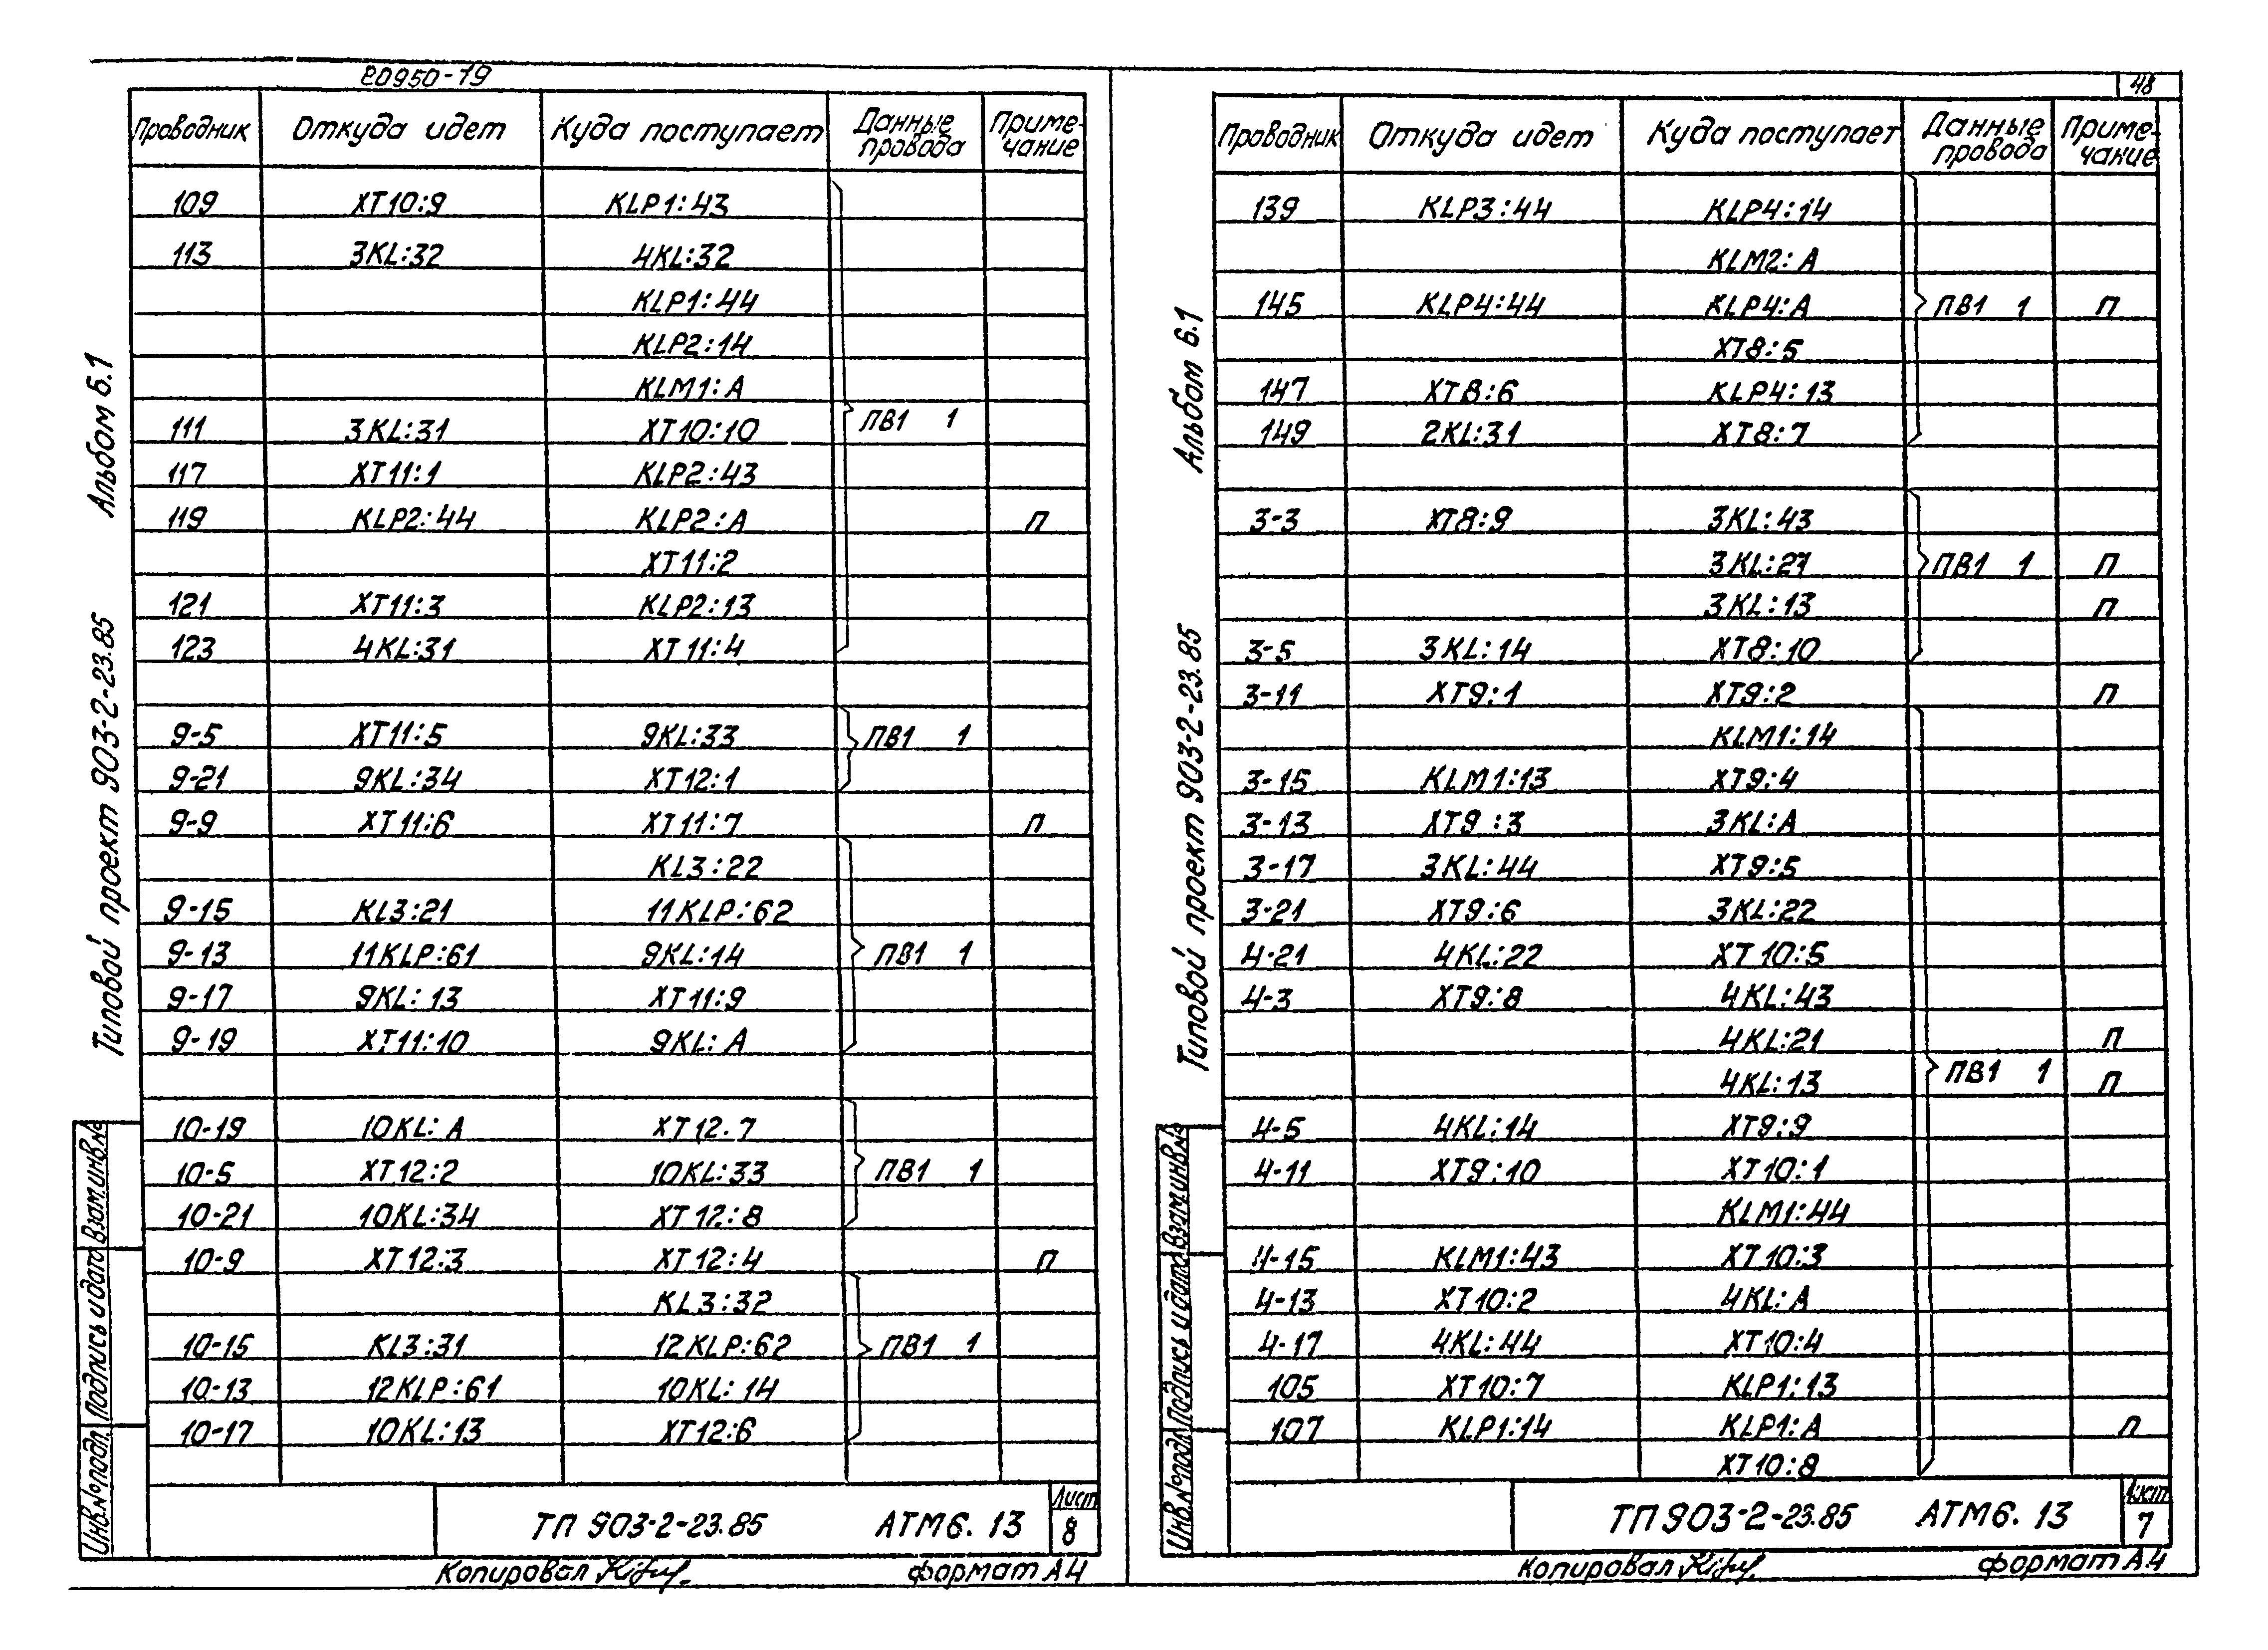 20950-19
Проводник Откуда идет Куда поступает Данные провода Приме-чание
109 XT10:9 KLP1:43
113 3KL:32 4KL:32
KLP1:44
KLP2:14
KLM1:A
ПВ1 1
111 3KL:31 XT10:10
117 XT11:1 KLP2:43
119 KLP2:44 KLP2:A П
XT11:2
121 XT11:3 KLP2:13
123 4KL:31 XT11:4
9-5 XT11:5 9KL:33 ПВ1 1
9-21 9KL:34 XT12:1
9-9 XT11:6 XT11:7 П
KL3:22
9-15 KL3:21 11KLP:62
9-13 11KLP:61 9KL:14 ПВ1 1
9-17 9KL:13 XT11:9
9-19 XT11:10 9KL:A
10-19 10KL:A XT12.7
10-5 XT12:2 10KL:33 ПВ1 1
10-21 10KL:34 XT12:8
10-9 XT12:3 XT12:4 П
KL3:32
10-15 KL3:31 12KLP:62 ПВ1 1
10-13 12KLP:61 10KL:14
10-17 10KL:13 XT12:6
ТП 903-2-23.85 АТМ6.13
Лист
8
Копировал
формат А4
Альбом 6.1
Типовой проект 903-2-23.85
Взам.инв.№
Подпись и дата
Инв.№ подл.
48
Проводник Откуда идет Куда поступает Данные провода Приме-чание
139 KLP3:44 KLP4:14
KLM2:A
145 KLP4:44 KLP4:A ПВ1 1 П
XT8:5
147 XT8:6 KLP4:13
149 2KL:31 XT8:7
3-3 XT8:9 3KL:43
3KL:21 ПВ1 1 П
3KL:13 П
3-5 3KL:14 XT8:10
3-11 XT9:1 XT9:2 П
KLM1:14
3-15 KLM1:13 XT9:4
3-13 XT9:3 3KL:A
3-17 3KL:44 XT9:5
3-21 XT9:6 3KL:22
4-21 4KL:22 XT10:5
4-3 XT9:8 4KL:43
4KL:21 П
4KL:13 ПВ1 1 П
4-5 4KL:14 XT9:9
4-11 XT9:10 XT10:1
KLM1:44
4-15 KLM1:43 XT10:3
4-13 XT10:2 4KL:A
4-17 4KL:44 XT10:4
105 XT10:7 KLP1:13
107 KLP1:14 KLP1:A П
XT10:8
ТП 903-2-23.85 АТМ6.13
Лист
7
Копировал
формат А4
Альбом 6.1
Типовой проект 903-2-23.85
Взам.инв.№
Подпись и дата
Инв.№ подл.